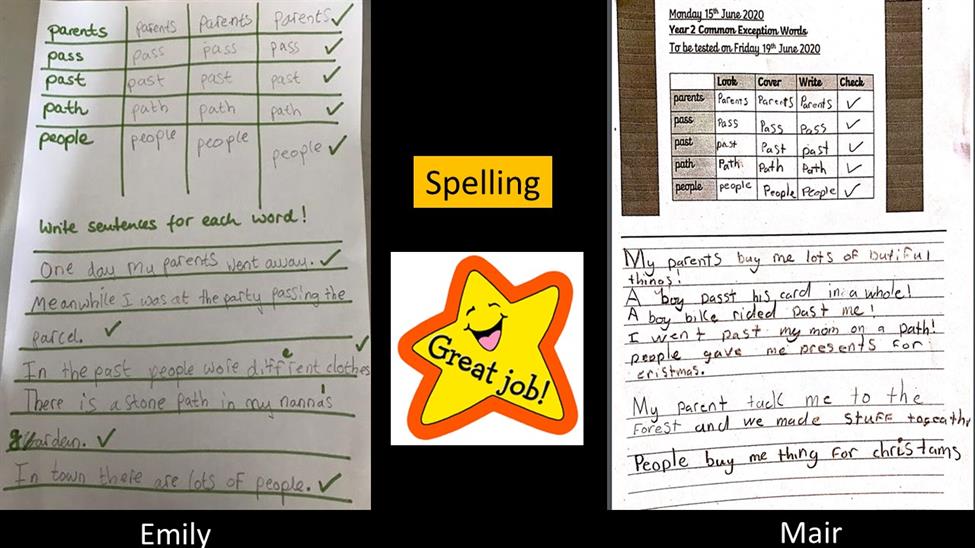 parents parents parents parents ✓
pass pass pass pass ✓
past past past past ✓
path path path path ✓
people people people people ✓
Write sentences for each word!
One day my parents went away. ✓
Meanwhile I was at the party passing the
parcel. ✓
In the past people wore different clothes ✓
There is a stone path in my nanna's
garden. ✓
In town there are lots of people. ✓
Emily
Spelling
Great job!
Monday 15th June 2020
Year 2 Common Exception Words
To be tested on Friday 19th June 2020
Look Cover Write Check
parents Parents Parents Parents ✓
pass Pass Pass Pass ✓
past past Past past ✓
path Path Path Path ✓
people people People People ✓
My parents buy me lots of butiful
things!
A boy passt his card in a whole!
A boy bike rided past me!
I went past my mom on a path!
people gave me presents for
cristmas.
My parent tack me to the
Forest and we made stuff
People buy me thing for christams
Mair